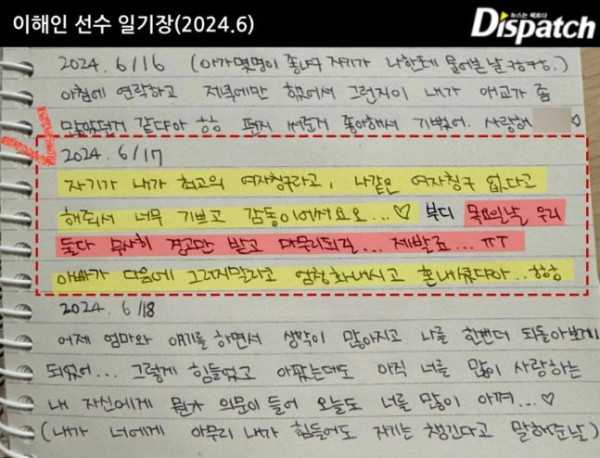 이해인 선수 일기장(2024.6)
뉴스는 팩트다
Dispatch
2024. 6/16 (아가 몇명이 좋냐구 자기가 나한테 물어본 날 ㅎㅎㅎ.)
아침에 연락하고 저녁에만 했어서 그런지이 내가 애교가 좀
많았던거 같다아 ㅎㅎ 편지 써준거 좋아해서 기뻤어. 사랑해 ♡
2024. 6/17
자기가 내가 최고의 여자칭구라고, 나같은 여자칭구 없다고
해줘서 너무 기쁘고 감동이어써요오...♡ 부디 목요일날 우리
둘다 무사히 경고만 받고 마무리되길... 제발죠...ㅠㅜ
아빠가 다음에 그러지말라고 엄청 화내시고 혼내키셨다아...ㅎㅎ
2024. 6/18
어제 엄마와 얘기를 하면서 생각이 많아지고 나를 한번더 되돌아보게
되었어... 그렇게 힘들었고 아팠는데도 아직 너를 많이 사랑하는
내 자신에게 의문이 들어 오늘도 너를 많이 아껴...♡
(내가 너에게 아무리 내가 힘들어도 자기는 챙긴다고 말해준날)